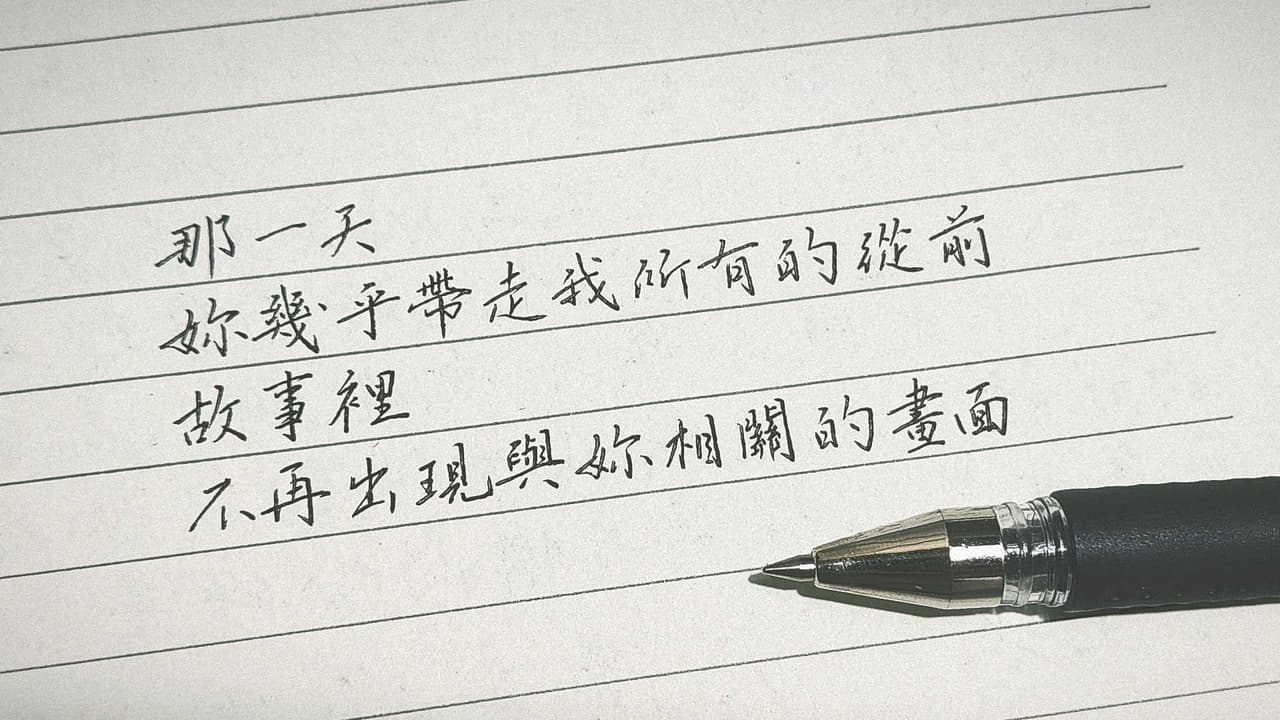 那一天
妳幾乎帶走我所有的從前
故事裡
不再出現與妳相關的畫面